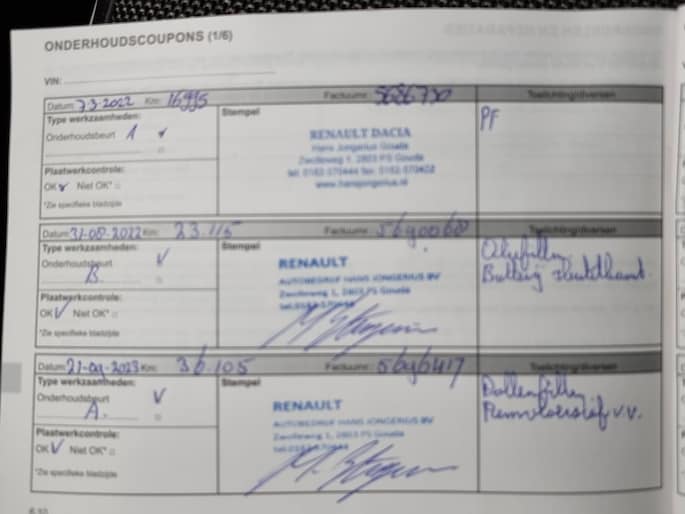 ONDERHOUDSCOUPONS (1/6)
VIN:
Datum: 7-3-2022 Km: 16995 Factuurnr: 5686730 Toelichting/diversen
Type werkzaamheden:
Stempel
PF
Onderhoudsbeurt 1 ✓
RENAULT DACIA
Hans Jongerius Gouda
Zwolleweg 1, 2803 PS Gouda
tel. 0182-570444 fax.
www.hansjongerius.nl
Plaatwerkcontrole:
OK ✓ Niet OK*
*Zie specifieke bladzijde
Datum: 31-08-2022 Km: 23.115 Factuurnr: Toelichting/diversen
Type werkzaamheden:
Stempel
Oliefilter
Onderhoudsbeurt ✓
B.
Batterij sleutelkaart
RENAULT
AUTOBEDRIJF HANS JONGERIUS BV
Zwolleweg 1, 2803 PS Gouda
tel. 0182-570444
Plaatwerkcontrole:
OK ✓ Niet OK*
*Zie specifieke bladzijde
Datum: 21-09-2023 Km: 36.105 Factuurnr: 5696417 Toelichting/diversen
Type werkzaamheden:
Stempel
Pollenfilter
Onderhoudsbeurt ✓
A.
Remvloeistof v.v.
RENAULT
AUTOBEDRIJF HANS JONGERIUS BV
Zwolleweg 1, 2803 PS Gouda
tel. 0182-570444
Plaatwerkcontrole:
OK ✓ Niet OK*
*Zie specifieke bladzijde